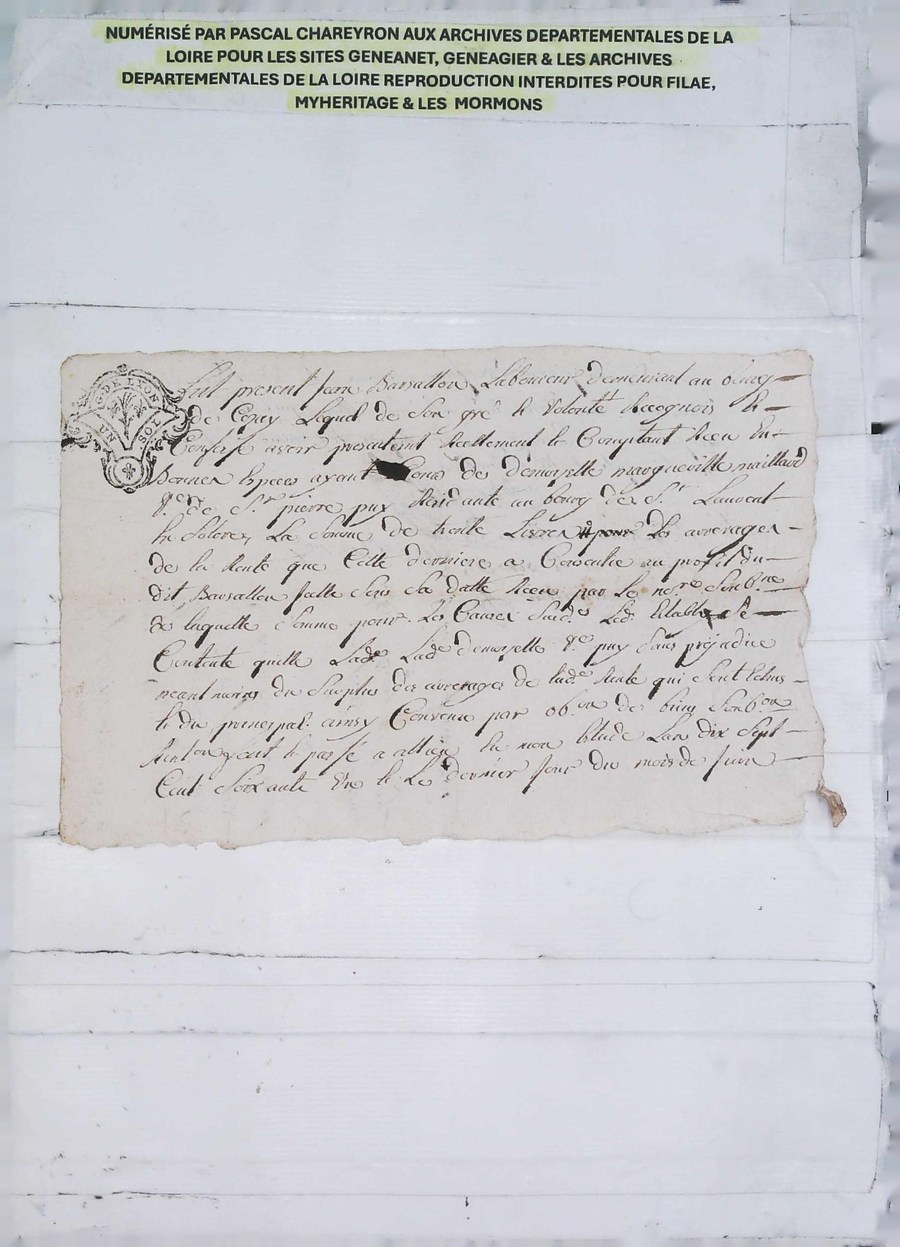 NUMÉRISÉ PAR PASCAL CHAREYRON AUX ARCHIVES DEPARTEMENTALES DE LA
LOIRE POUR LES SITES GENEANET, GENEAGIER & LES ARCHIVES
DEPARTEMENTALES DE LA LOIRE REPRODUCTION INTERDITES POUR FILAE,
MYHERITAGE & LES MORMONS
G. DE LYON
UN SOL
fut present Jean Barsallon Laboureur demeurant au bourg
de Lequel de son gré & volonté Recognois &
Confesse avoir presentem.t Reellement & Comptant Receu En
Bonnes Especes ayant Cours de demoyselle margueritte maillard
de S.t pierre puy au bourg de S.t Laurent
La somme de trente Livres pour Les arrerages
de la Rente que Cette derniere a au profit du
dit Barsallon sa datte Receu par le no.re
de laquelle somme pour Les Causes Susd.
Contente quitte Lad.e demoyselle puy sans prejudice
neant moins du Surplus des arrerages de lad.e Rente qui sont Echus
& du principal ainsy Convenu par de biens
& passé a En mon Etude Lan dix Sept
Cent Soixante & Le dernier Jour du mois de Juin